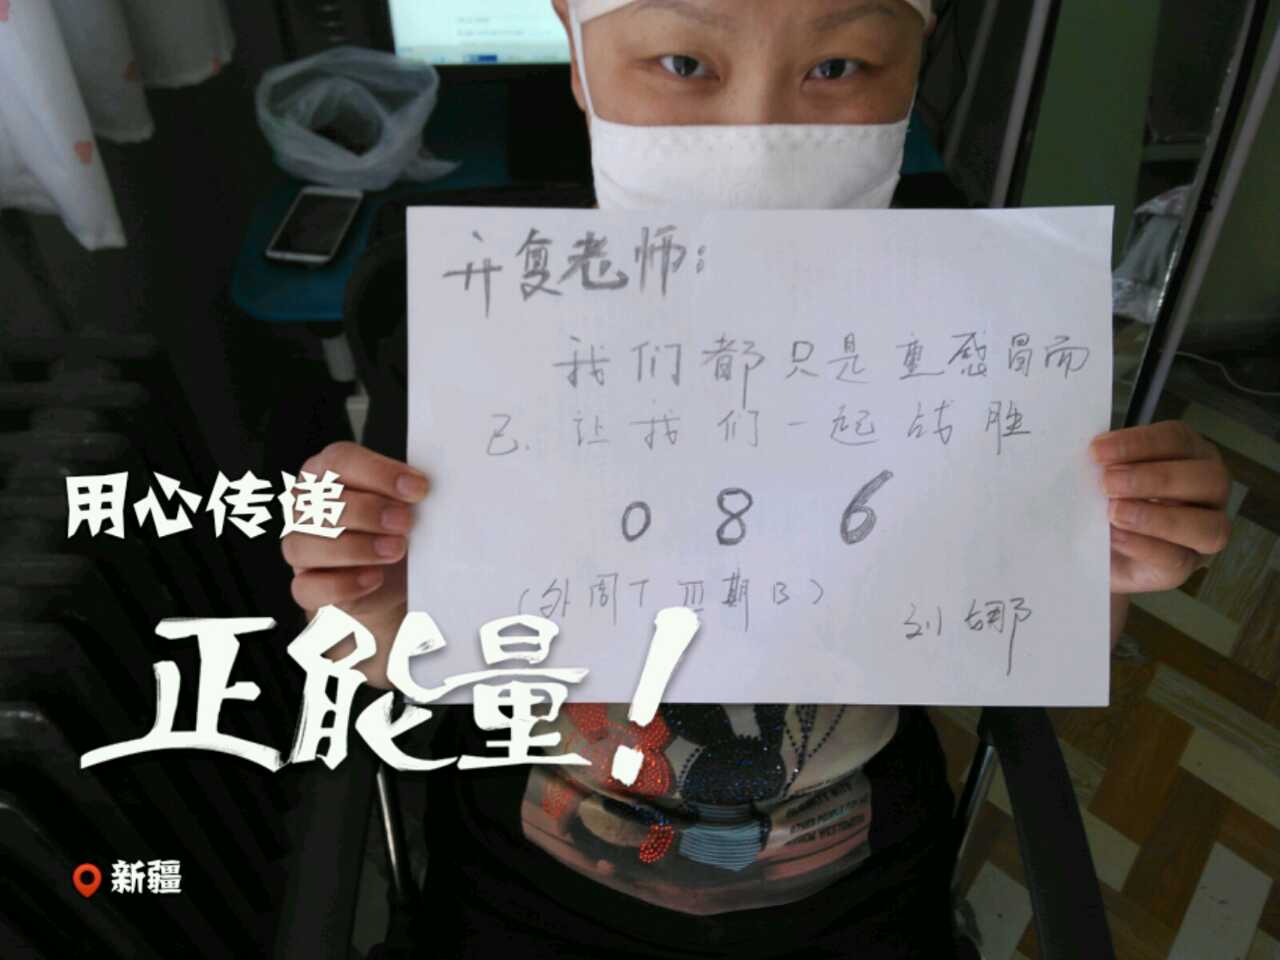 并复老师：
我们都只是重感冒而
已.让我们一起战胜
086
(外周T Ⅲ期B)
刘娜
用心传递
正能量！
新疆